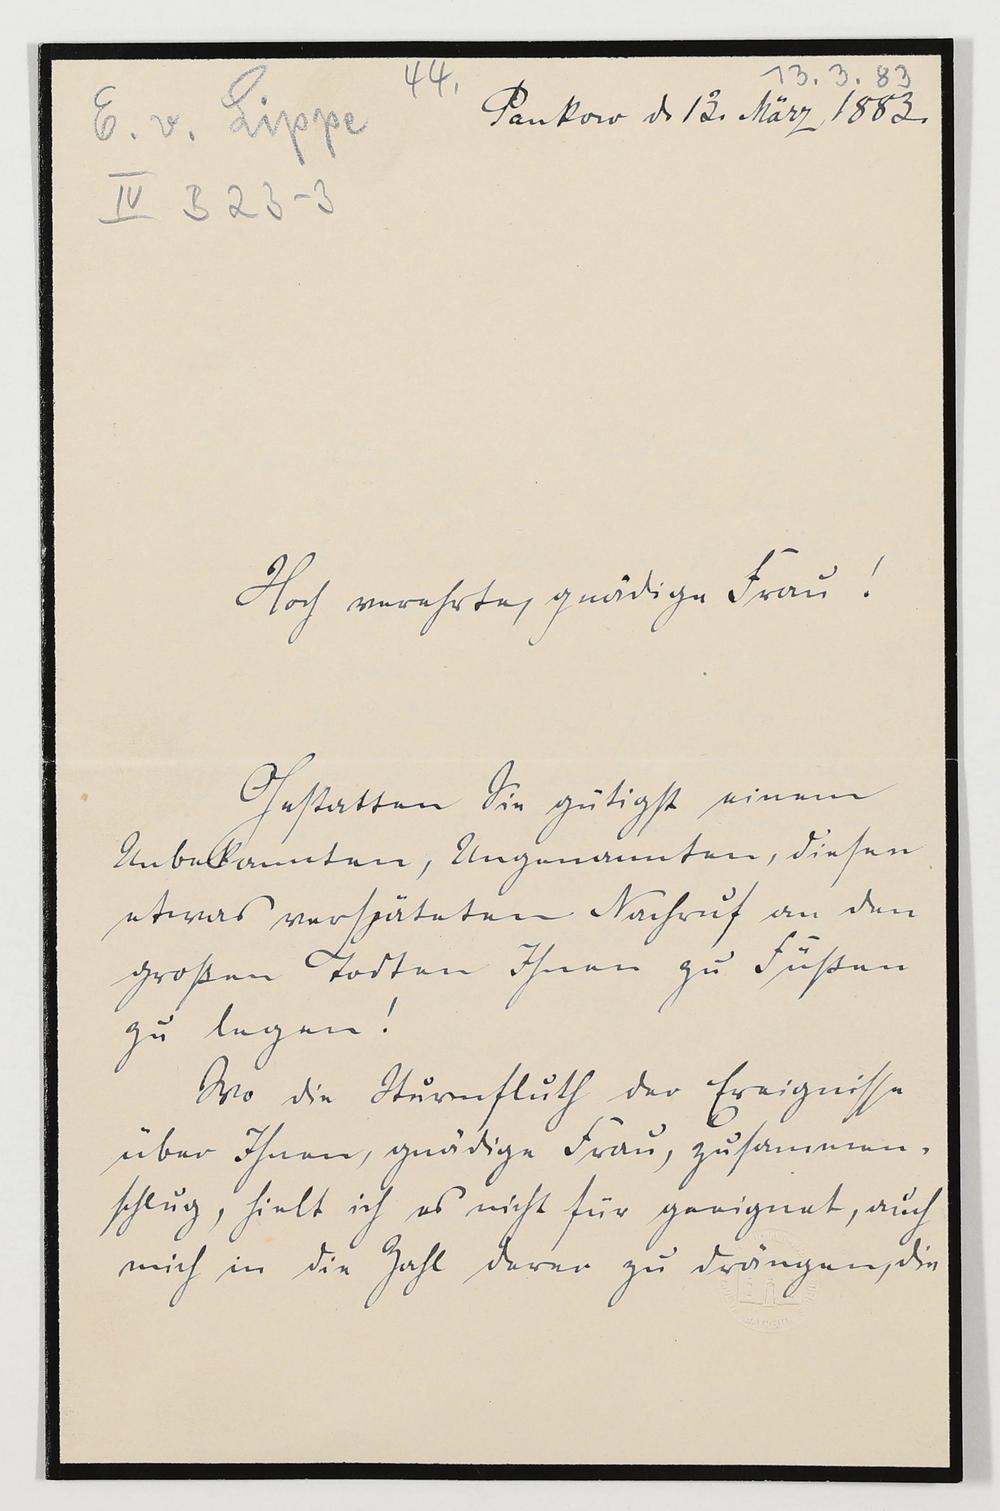 44.
13. 3. 83
E. v. Lippe
Pankow d. 13. März 1883.
IV B 23-3
Hoch verehrte, gnädige Frau!
Gestatten Sie gütigst einem
Unbekannten, Ungenannten, diesen
etwas verspäteten Nachruf an den
großen Todten Ihnen zu Füßen
zu legen!
Wo die Sturmfluth der Ereignisse
über Ihnen, gnädige Frau, zusammen-
schlug, hielt ich es nicht für geeignet, auch
mich in die Zahl derer zu drängen, die